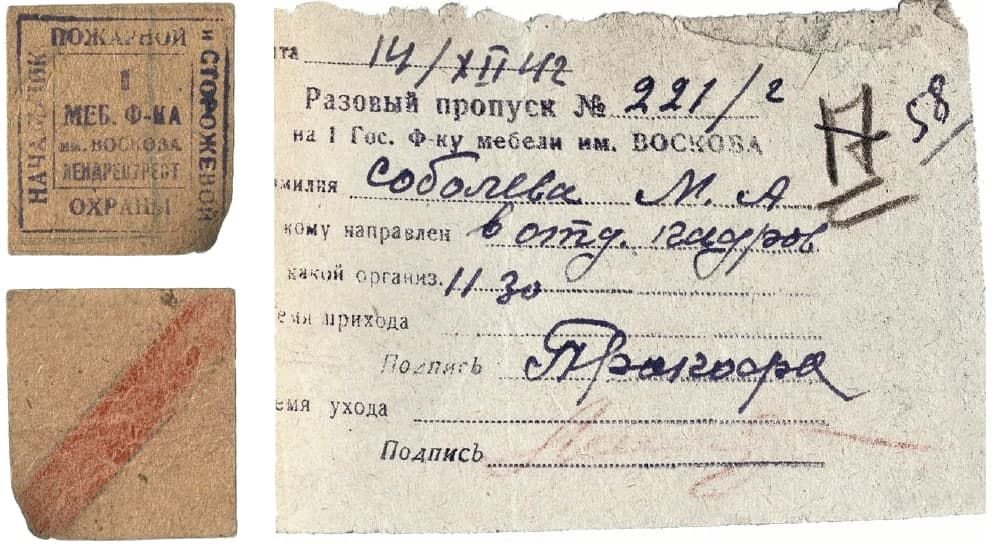 НАЧАЛЬНИК
ПОЖАРНОЙ
и СТОРОЖЕВОЙ
1
МЕБ. Ф-КА
им. ВОСКОВА
ЛЕНДРЕВТРЕСТ
ОХРАНЫ
14/XII 42
Разовый пропуск № 221/2
58/
на 1 Гос. Ф-ку мебели им. ВОСКОВА
амилия Соболева М. А
кому направлен в отд. кадров
какой организ. 11 30
емя прихода
Подпись
емя ухода
Подпись